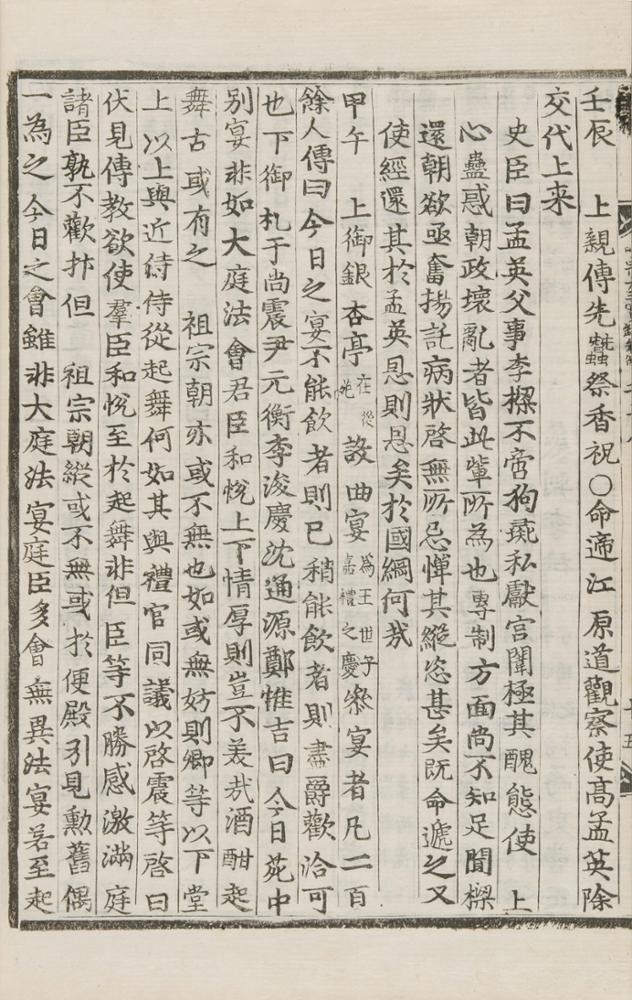 壬辰　上親傳先蠶祭香祝○命遞江原道觀察使高孟英除
交代上来
史臣曰孟英父事李樑不啻狗彘私獻宮闈極其醜態使　上
心蠱惑朝政壞亂者皆此輩所為也專制方面尚不知足聞樑
還朝欲亟奮揚託病狀啓無所忌憚其縱恣甚矣既命遞之又
使經還其於孟英恩則恩矣於國綱何㢤
甲午　上御銀杏亭在後苑設曲宴為王世子嘉禮之慶參宴者凡二百
餘人傳曰今日之宴不能飮者則已稍能飮者則盡爵歡洽可
也下御札于尚震尹元衡李浚慶沈通源鄭惟吉曰今日苑中
別宴非如大庭法會君臣和悅上下情厚則豈不美㢤酒酣起
舞古或有之　祖宗朝亦或不無也如或無妨則卿等以下堂
上以上與近侍侍從起舞何如其與禮官同議以啓震等啓曰
伏見傳教欲使羣臣和悅至於起舞非但臣等不勝感激滿庭
諸臣孰不歡抃但　祖宗朝縱或不無或於便殿引見勳舊偶
一為之今日之會雖非大庭法宴庭臣多會無異法宴若至起